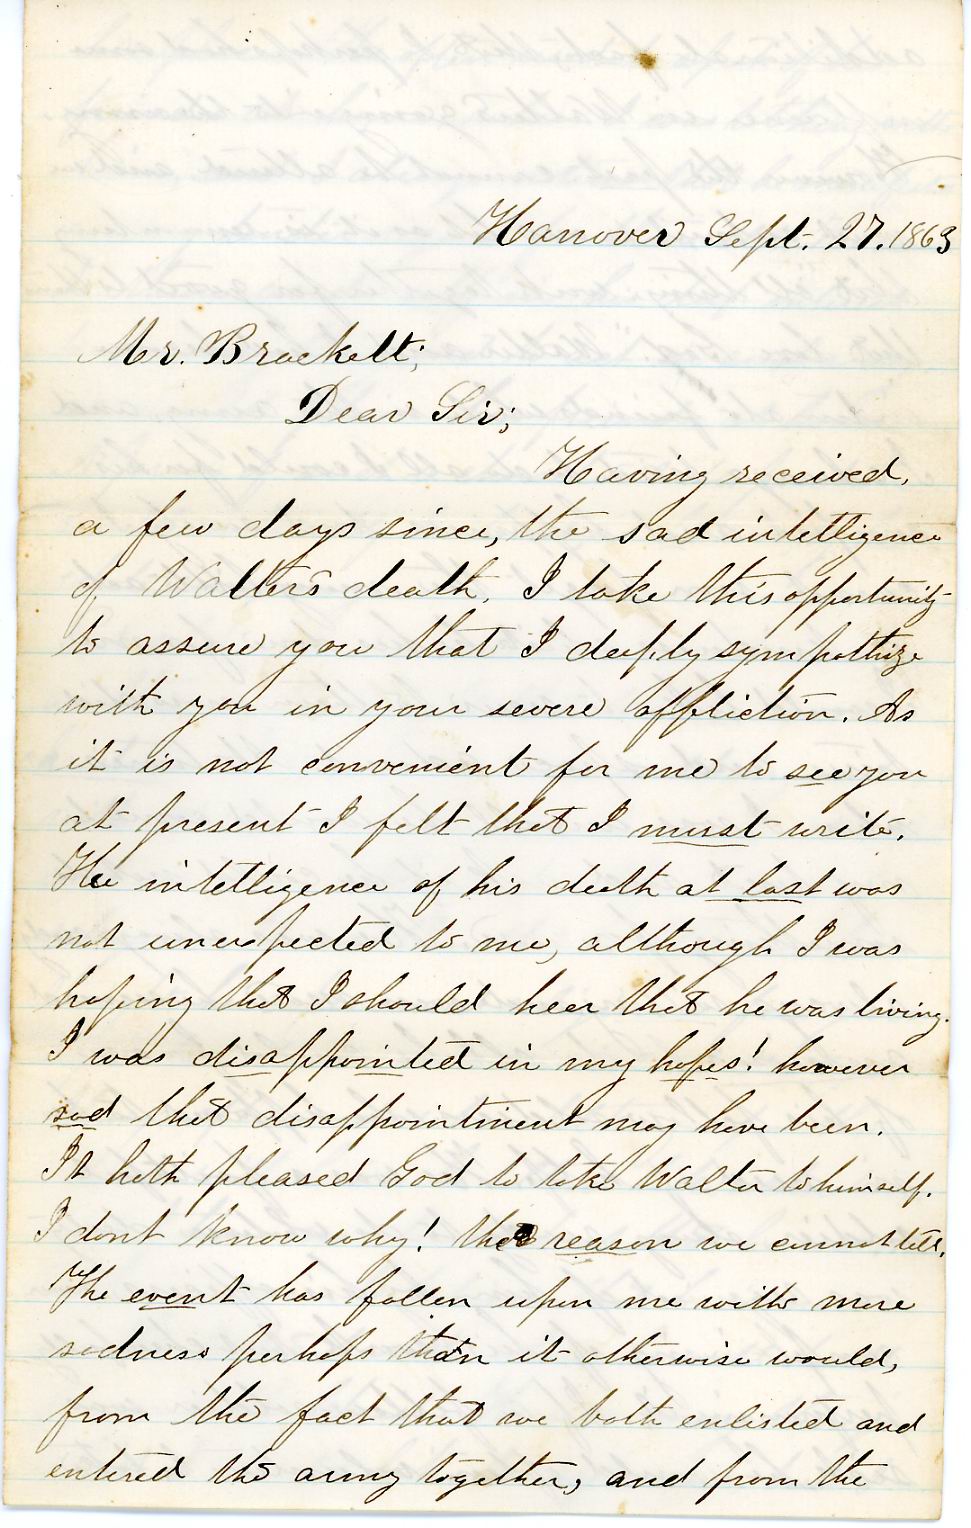 Hanover Sept. 27. 1863
Mr. Brackett;
Dear Sir;
Having received,
a few days since, the sad intelligence
of Walter's death, I take this opportunity
to assure you that I deeply sympathize
with you in your severe affliction. As
it is not convenient for me to see you
at present I felt that I must write.
The intelligence of his death at last was
not unexpected to me, although I was
hoping that I should hear that he was living.
I was disappointed in my hopes! however
sad that disappointment may have been.
It hath pleased God to take Walter to himself.
I dont know why! the reason we cannot tell.
The event has fallen upon me with more
sadness perhaps than it otherwise would,
from the fact that we both enlisted and
entered the army together, and from the